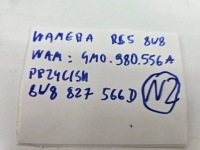 KAMERA RS5 8W8
NAM: 4M0.980.556A
PRZYCISK
8W8 827 566D
N2